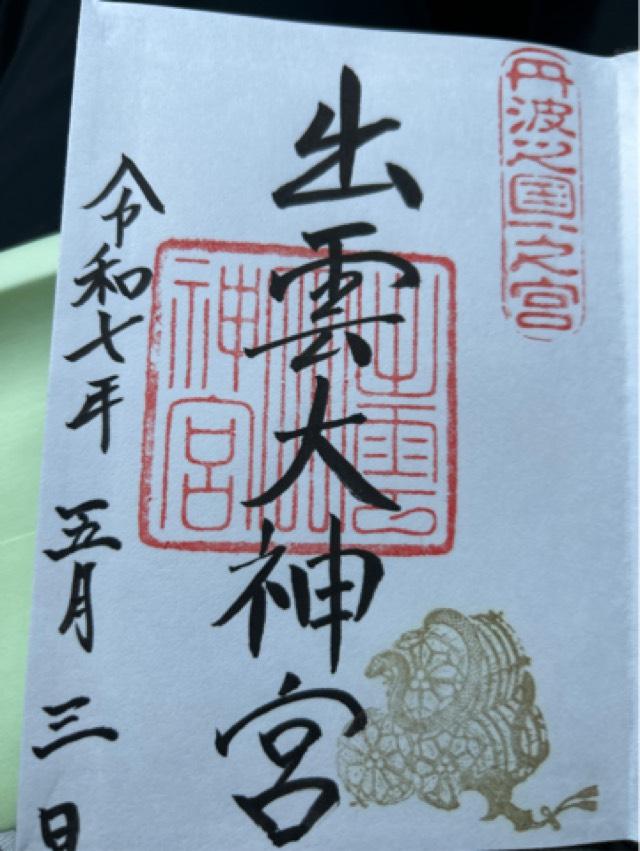 丹波之国一之宮
出雲大神宮
出雲大神宮
令和七年 五月 三日